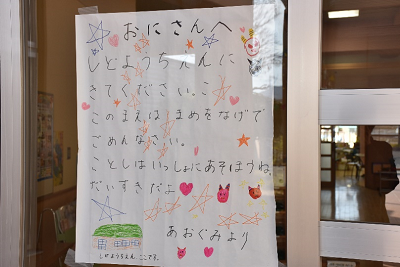 おにさんへ
しどようちえんに
きてください。こ
このまえはまめをなげて
ごめんなさい。
ことしはいっしょにあそぼうね。
だいすきだよ
あおぐみより
しどようちえん ここです。